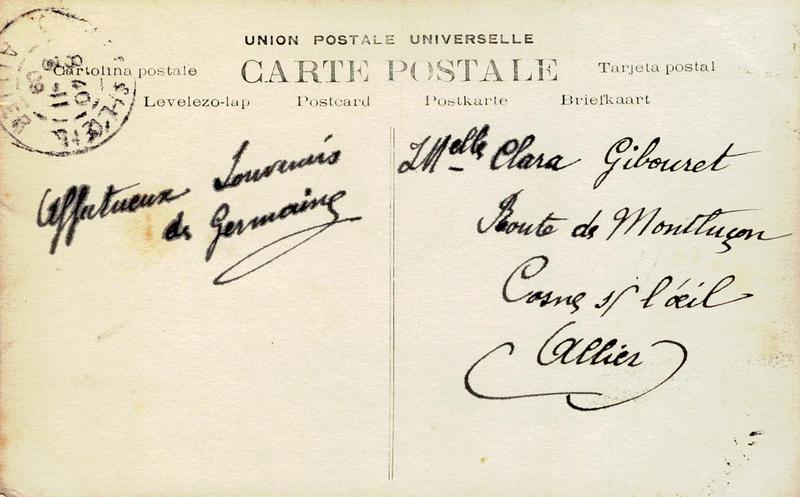 UNION POSTALE UNIVERSELLE
Cartolina postale CARTE POSTALE Tarjeta postal
Levelezo-lap Postcard Postkarte Briefkaart
ALLIER
Affectueux Souvenirs
de Germaine
Melle Clara Gibouret
Route de Montluçon
Cosne s/ l'œil
Allier